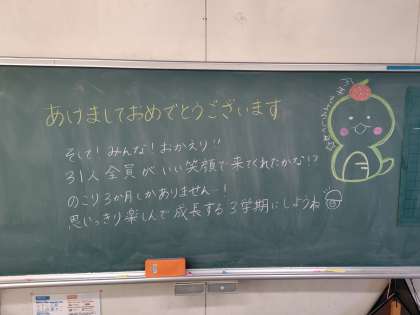 あけましておめでとうございます
そして！みんな！おかえり!!
31人全員がいい笑顔で来てくれたかな!?
のこり3か月しかありません…！
思いっきり楽しんで成長する3学期にしようね